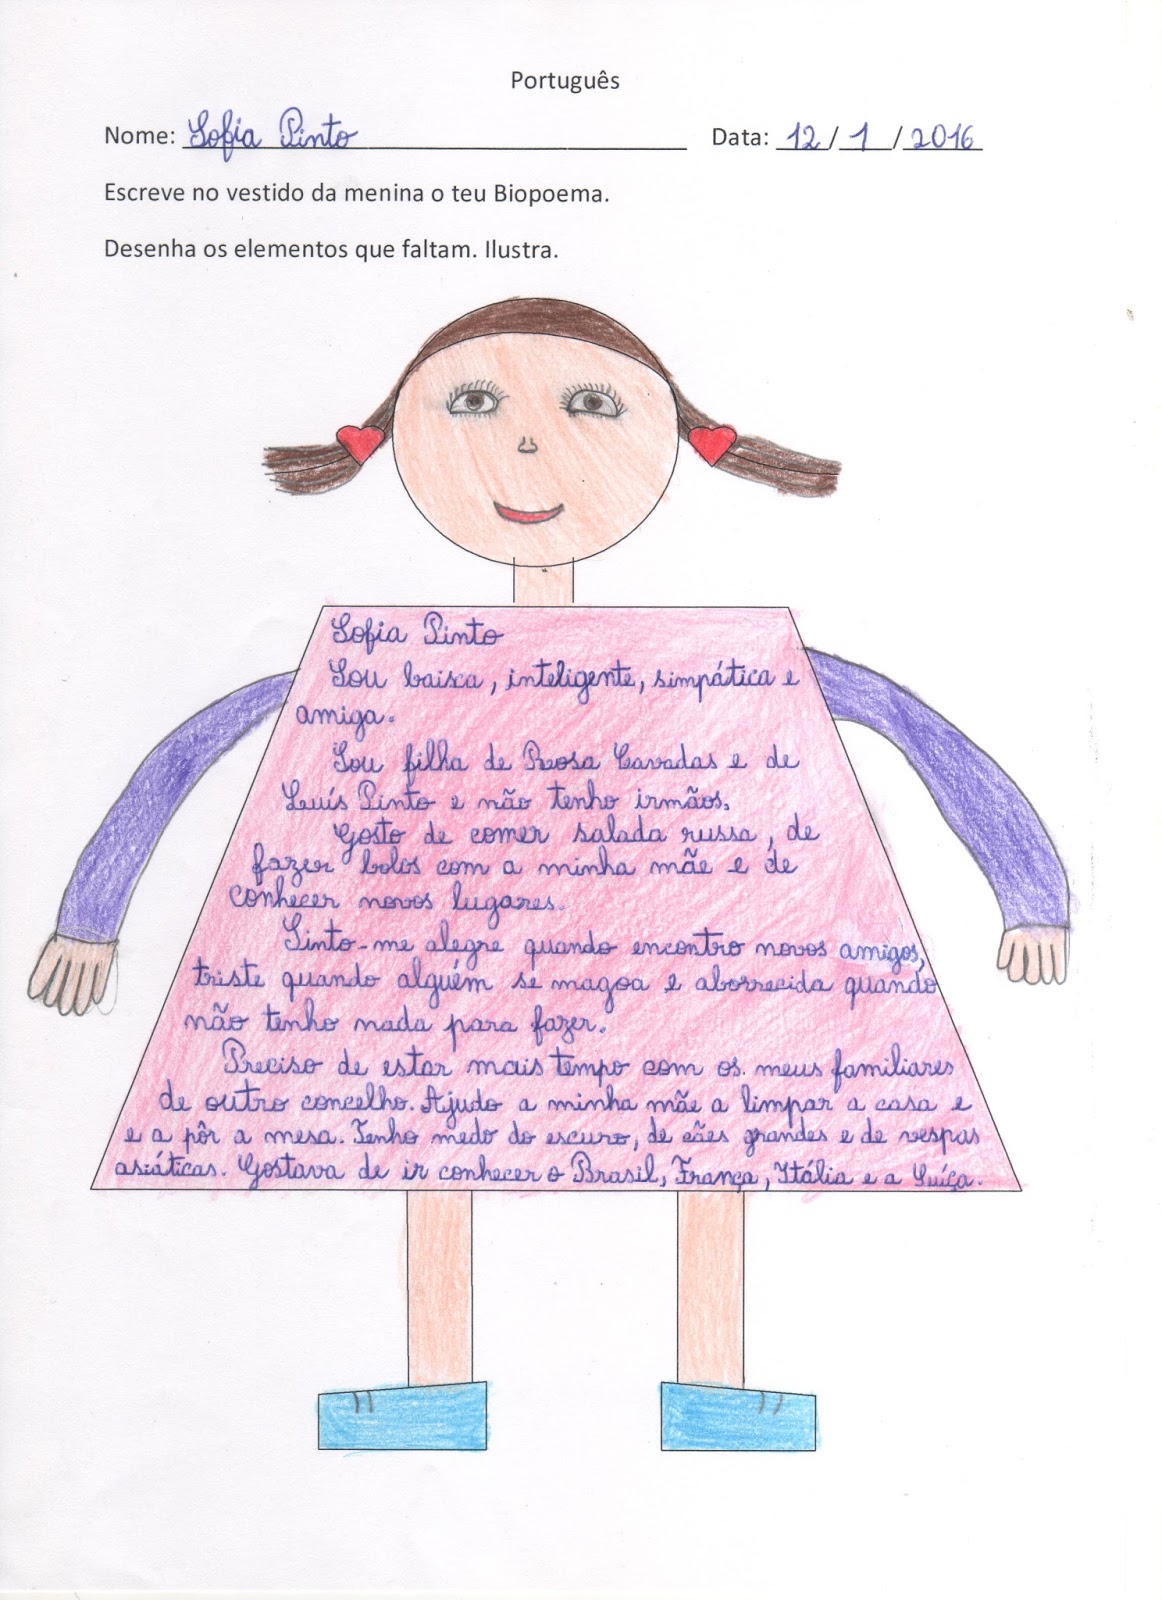 Português
Nome: Sofia Pinto Data: 12/1/2016
Escreve no vestido da menina o teu Biopoema.
Desenha os elementos que faltam. Ilustra.
Sofia Pinto
Sou baixa, inteligente, simpática e
amiga.
Sou filha de Rosa Cavadas e de
Luís Pinto e não tenho irmãos.
Gosto de comer salada russa, de
fazer bolos com a minha mãe e de
conhecer novos lugares.
Sinto-me alegre quando encontro novos amigos,
triste quando alguém se magoa e aborrecida quando
não tenho nada para fazer.
Preciso de estar mais tempo com os meus familiares
de outro concelho. Ajudo a minha mãe a limpar a casa e
e a pôr a mesa. Tenho medo do escuro, de cães grandes e de vespas
asiáticas. Gostava de ir conhecer o Brasil, França, Itália e a Suíça.